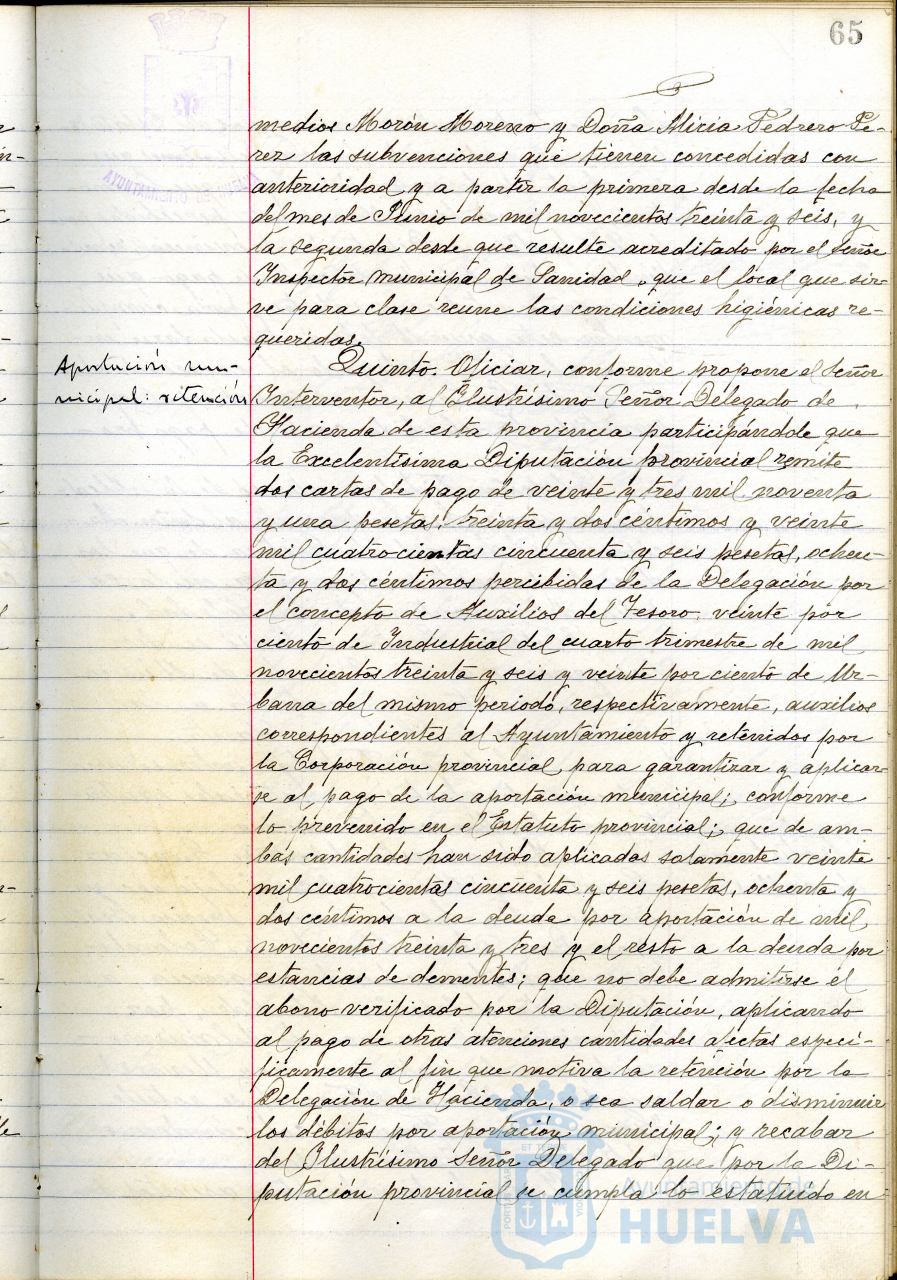 65
AYUNTAMIENTO DE HUELVA
medios Morón Moreno y Doña Alicia Pedrero Pe-
rez las subvenciones que tienen concedidas con
anterioridad y a partir la primera desde la fecha
del mes de Junio de mil novecientos treinta y seis, y
la segunda desde que resulte acreditado por el señor
Inspector municipal de Sanidad, que el local que sir-
ve para clase reune las condiciones higiénicas re-
queridas.
Aportación mu-
nicipal: retención
Quinto. Oficiar, conforme propone el señor
Interventor, al Ilustrísimo Señor Delegado de
Hacienda de esta provincia participándole que
la Excelentísima Diputación provincial remite
dos cartas de pago de veinte y tres mil noventa
y una pesetas, treinta y dos céntimos y veinte
mil cuatrocientas cincuenta y seis pesetas, ochen-
ta y dos céntimos percibidas de la Delegación por
el concepto de Auxilios del Tesoro, veinte por
ciento de Industrial del cuarto trimestre de mil
novecientos treinta y seis y veinte por ciento de Ur-
bana del mismo periodo, respectivamente, auxilios
correspondientes al Ayuntamiento y retenidos por
la Corporación provincial para garantizar y aplicar-
se al pago de la aportación municipal; conforme
lo prevenido en el Estatuto provincial; que de am-
bas cantidades han sido aplicadas solamente veinte
mil cuatrocientas cincuenta y seis pesetas, ochenta y
dos céntimos a la deuda por aportación de mil
novecientos treinta y tres y el resto a la deuda por
estancias de dementes; que no debe admitirse el
abono verificado por la Diputación, aplicando
al pago de otras atenciones cantidades afectas especí-
ficamente al fin que motiva la retención por la
Delegación de Hacienda, o sea saldar o disminuir
los débitos por aportación municipal; y recabar
del Ilustrísimo Señor Delegado que por la Di-
putación provincial se cumpla lo estatuido en
Ayuntamiento de
HUELVA